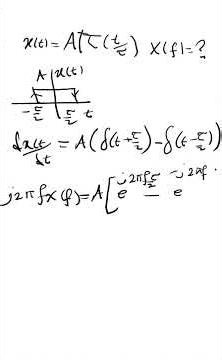 x(t) = A π(t/τ) X(f) = ?
A x(t)
-τ/2 τ/2 t
dx(t)/dt = A(δ(t+τ/2) - δ(t-τ/2))
j2πf X(f) = A[e^{j2πfτ/2} - e^{-j2πf